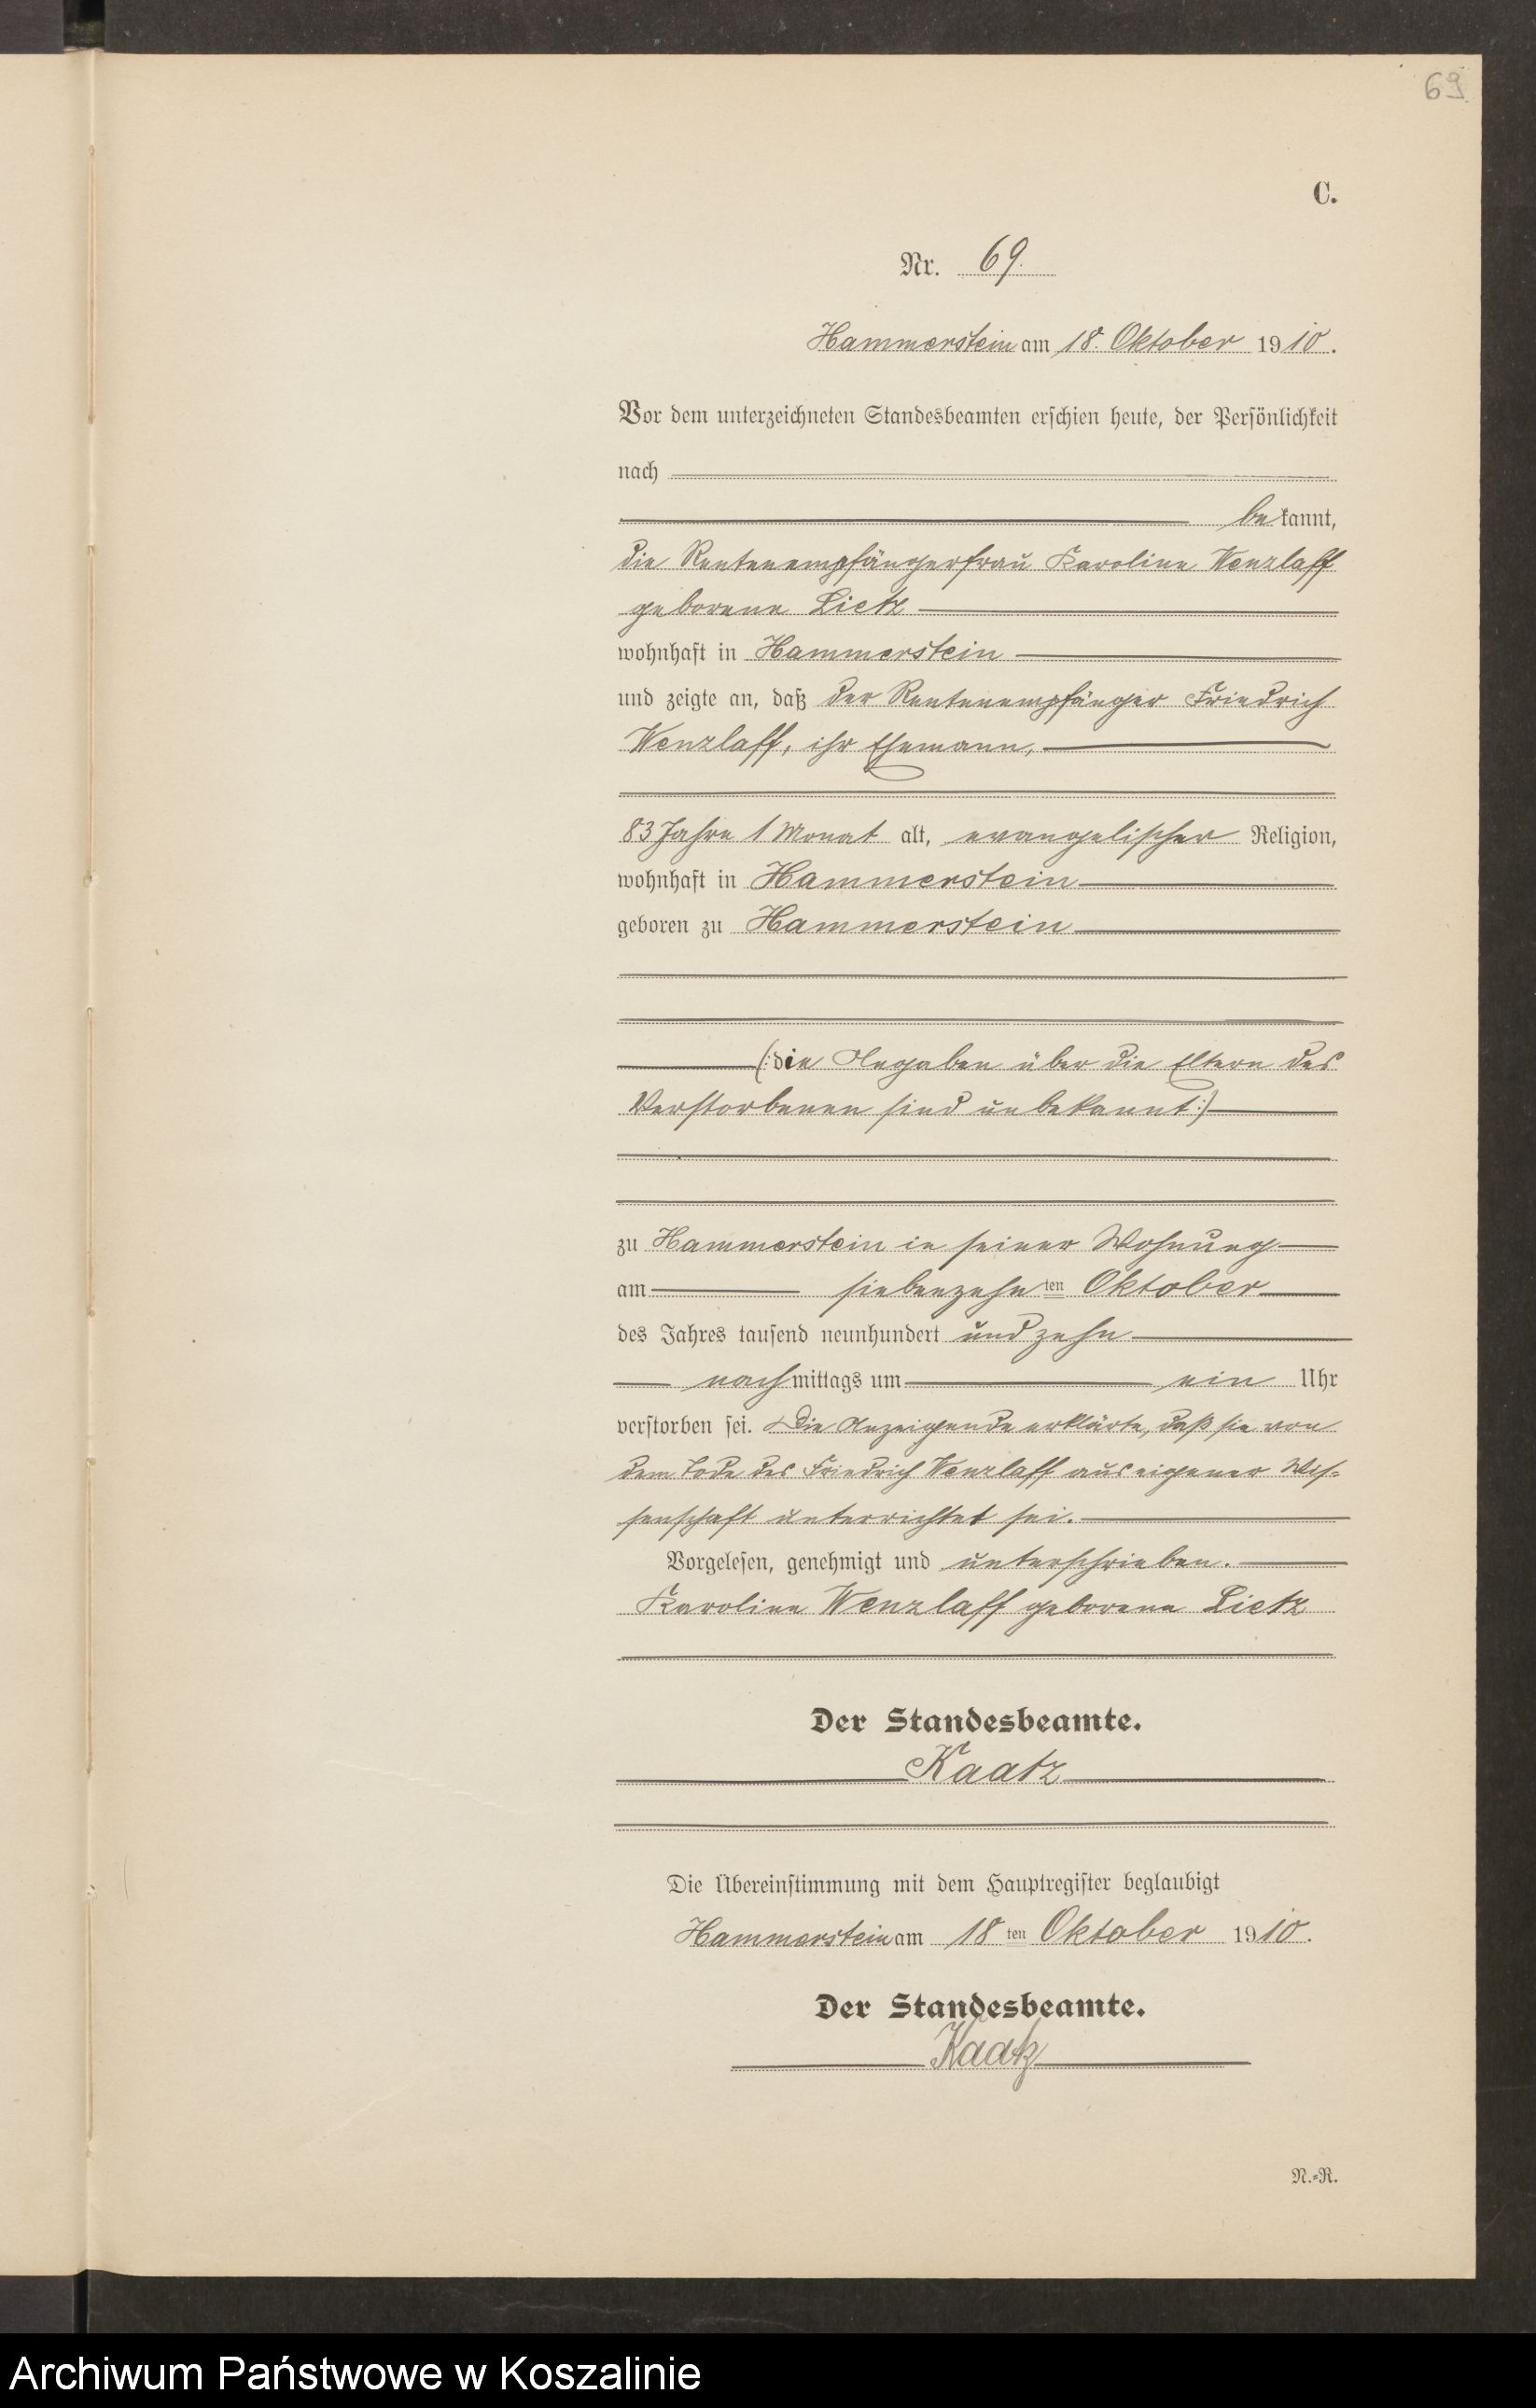 69
C.
Nr. 69.
Hammerstein am 18. Oktober 1910.
Vor dem unterzeichneten Standesbeamten erschien heute, der Persönlichkeit
nach
bekannt,
die Rentenempfängerfrau Karoline Wenzlaff
geborene Lietz
wohnhaft in Hammerstein
und zeigte an, daß der Rentenempfänger Friedrich
Wenzlaff, ihr Ehemann,
83 Jahre 1 Monat alt, evangelischer Religion,
wohnhaft in Hammerstein
geboren zu Hammerstein
(: die Angaben über die Eltern des
Verstorbenen sind unbekannt :)
zu Hammerstein in seiner Wohnung
am siebenzehnten Oktober
des Jahres tausend neunhundert und zehn
nachmittags um ein Uhr
verstorben sei. Die Anzeigende erklärte, daß sie von
dem Tode des Friedrich Wenzlaff aus eigener Wis-
senschaft unterrichtet sei.
Vorgelesen, genehmigt und unterschrieben.
Karoline Wenzlaff geborene Lietz
Der Standesbeamte.
Kaatz
Die Übereinstimmung mit dem Hauptregister beglaubigt
Hammerstein am 18ten Oktober 1910.
Der Standesbeamte.
Kaatz
N.=R.
Archiwum Państwowe w Koszalinie